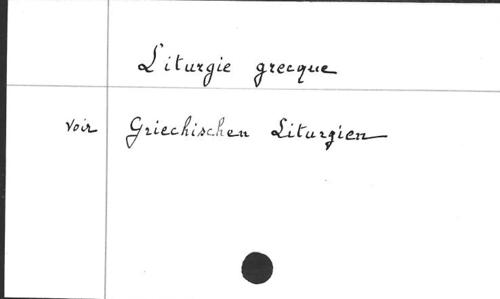 Liturgie grecque
voir Griechischen Liturgien